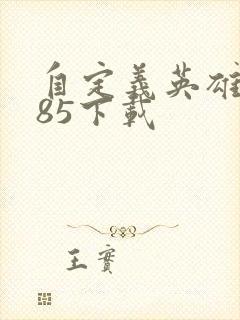 自定義英雄
85下載
王實